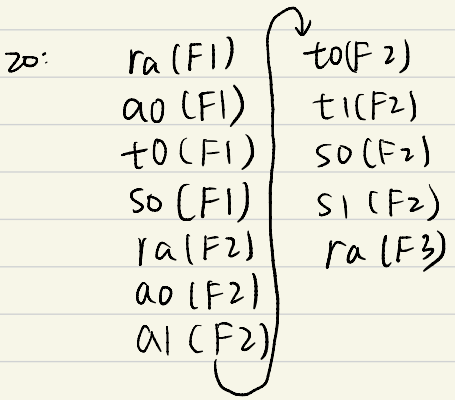 20:
ra (F1)
a0 (F1)
t0 (F1)
s0 (F1)
ra (F2)
a0 (F2)
a1 (F2)
t0(F2)
t1(F2)
s0 (F2)
s1 (F2)
ra (F3)